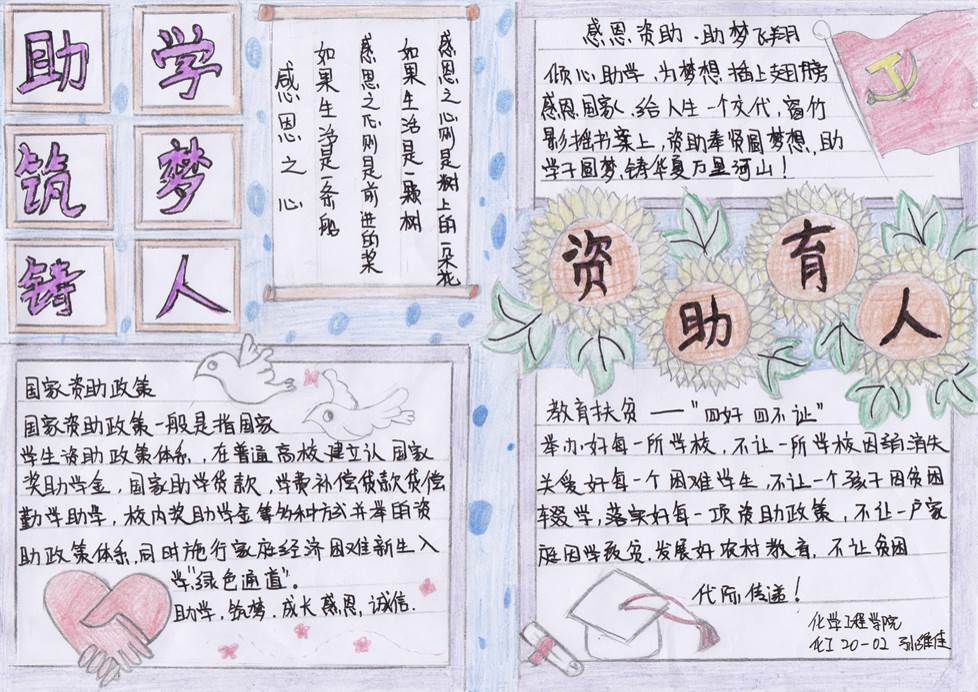 助学
筑梦
铸人
感恩之心
如果生活是一条船
感恩之心则是前进的桨
如果生活是一颗树
感恩之心则是树上的一朵花
感恩资助·助梦飞翔
倾心助学，为梦想插上翅膀
感恩国家，给人生一个交代，窗竹
影摇书案上，资助奉贤圆梦想，助
学子圆梦，铸华夏万里河山！
资助育人
国家资助政策
国家资助政策一般是指国家
学生资助政策体系，在普通高校建立认国家
奖助学金，国家助学贷款，学费补偿贷款贷偿
勤学助学，校内奖助学金等多种方式并举的资
助政策体系，同时施行家庭经济困难新生入
学“绿色通道”。
助学，筑梦，成长感恩，诚信．
教育扶贫——“四好四不让”
举办好每一所学校，不让一所学校因弱消失
关爱好每一个困难学生，不让一个孩子因贫困
辍学，落实好每一项资助政策，不让一户家
庭因学致贫，发展好农村教育，不让贫困
代际传递！
化学工程学院
化工20-02 孙维佳